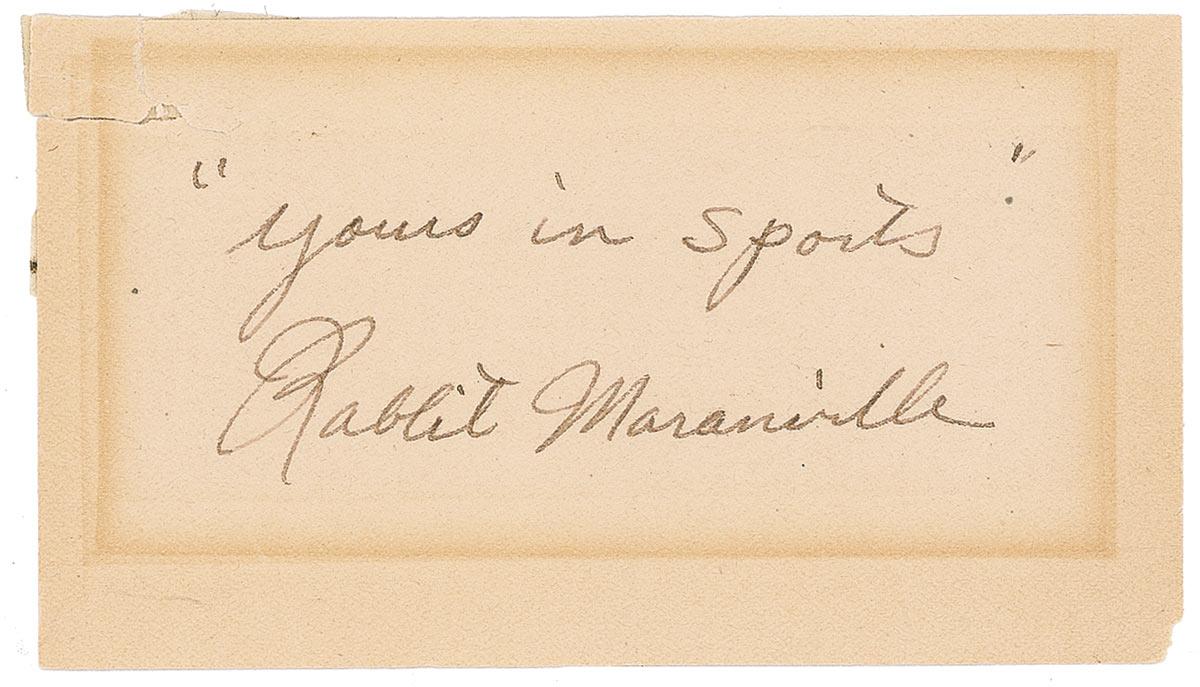 "yours in sports"
Rabbit Maranville